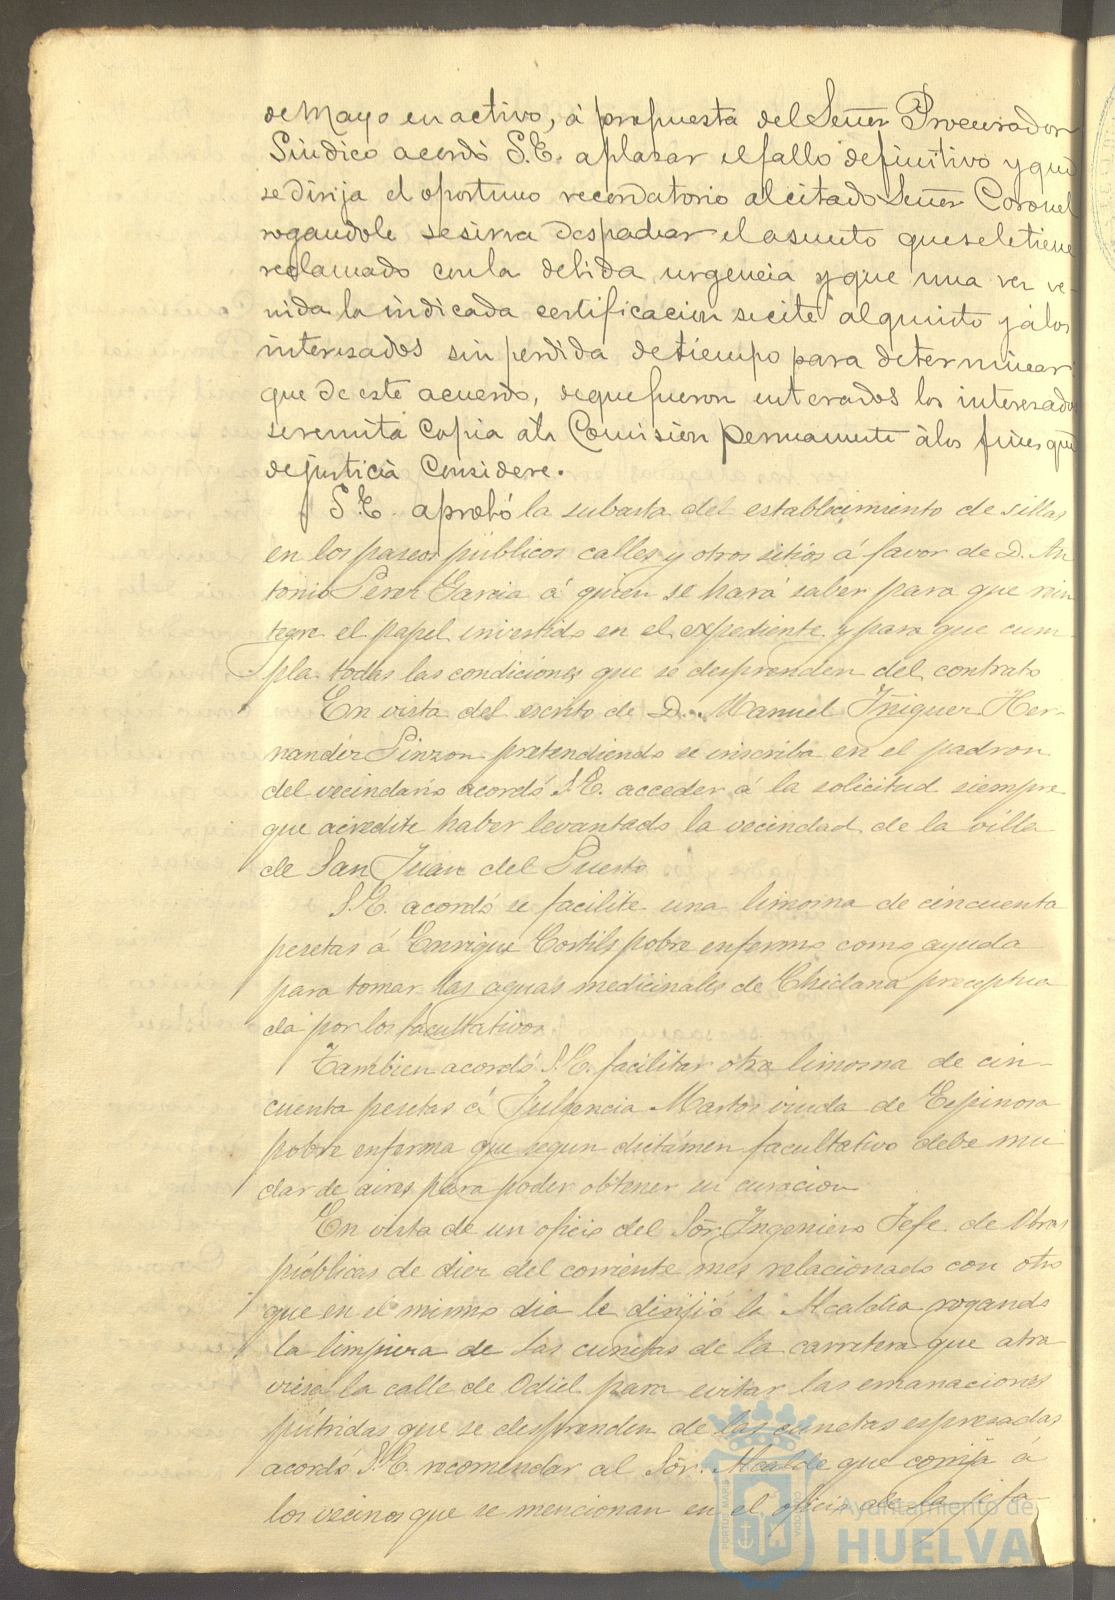 de Mayo en activo, á propuesta del Señor Procurador
Sindico acordó S.E. aplasar el fallo definitivo y que
se dirija el oportuno recordatorio al citado Señor Coronel
rogandole se sirva despachar el asunto que se le tiene
reclamado con la debida urgencia y que una vez ve-
nida la indicada certificacion se cite al quinto y á los
interesados sin perdida de tiempo para determinar
que de este acuerdo, de que fueron enterados los interesados
se remita copia á la Comision permanente á los fines que
de justicia considere.
S.E. aprobó la subasta del establecimiento de sillas
en los paseos públicos calles y otros sitios á favor de D. An
tonio Perez Garcia á quien se hará saber para que rein
tegre el papel invertido en el expediente y para que cum-
pla todas las condiciones que se desprenden del contrato
En vista del escrito de D. Manuel Iñiguez Her-
nandez Pinzon pretendiendo se inscriba en el padron
del vecindario acordó S.E. acceder á la solicitud siempre
que acredite haber levantado la vecindad de la villa
de San Juan del Puerto
S.E. acordó se facilite una limosna de cincuenta
pesetas á Enrique Cortils pobre enfermo como ayuda
para tomar las aguas medicinales de Chiclana preceptua
da por los facultativos
Tambien acordó S.E. facilitar otra limosna de cin-
cuenta pesetas á Fulgencia Martos viuda de Espinosa
pobre enferma que segun dictámen facultativo debe mu
dar de aires para poder obtener su curacion
En vista de un oficio del Sõr. Ingeniero Jefe de Obras
públicas de diez del corriente mes relacionado con otro
que en el mismo dia le dirijió la Alcaldia rogando
la limpieza de las cunetas de la carretera que atra
viesa la calle de Odiel para evitar las emanaciones
pútridas que se desprenden de las cunetas espresadas
acordó S.E. recomendar al Sõr. Alcalde que corrija á
los vecinos que se mencionan en el oficio de la jefa-
Ayuntamiento de
HUELVA